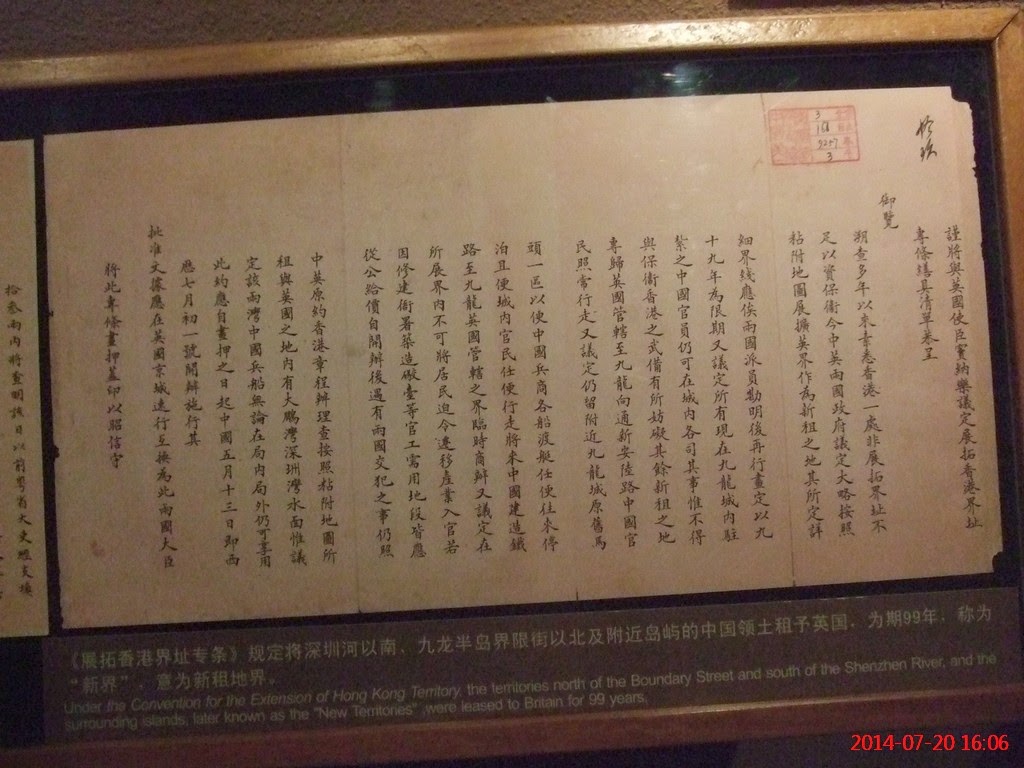 謹將與英國使臣竇納樂議定展拓香港界址
專條繕具清單恭呈
御覽
溯查多年以來素悉香港一處非展拓界址不
足以資保衛今中英兩國政府議定大略按照
粘附地圖展擴英界作為新租之地其所定詳
細界綫應俟兩國派員勘明後再行畫定以九
十九年為限期又議定所有現在九龍城內駐
紮之中國官員仍可在城內各司其事惟不得
與保衛香港之武備有所妨礙其餘新租之地
專歸英國管轄至九龍向通新安陸路中國官
民照常行走又議定仍留附近九龍城原舊馬
頭一區以便中國兵商各船渡艇任便往來停
泊且便城內官民任便行走將來中國建造鐵
路至九龍英國管轄之界臨時商辦又議定在
所展界內不可將居民迫令遷移產業入官若
因修建衙署築造礮臺等官工需用地段皆應
從公給價自開辦後遇有兩國交犯之事仍照
中英原約香港章程辦理查按照粘附地圖所
租與英國之地內有大鵬灣深圳灣水面惟議
定該兩灣中國兵船無論在局內局外仍可享用
此約應自畫押之日起中國五月十三日即西
歷七月初一號開辦施行其
批准文據應在英國京城速行互換為此兩國大臣
將此專條畫押蓋印以昭信守
《展拓香港界址专条》规定将深圳河以南、九龙半岛界限街以北及附近岛屿的中国领土租予英国，为期99年，称为
“新界”，意为新租地界。
Under the Convention for the Extension of Hong Kong Territory, the territories north of the Boundary Street and south of the Shenzhen River, and the
surrounding islands, later known as the "New Territories" ,were leased to Britain for 99 years.
2014-07-20 16:06